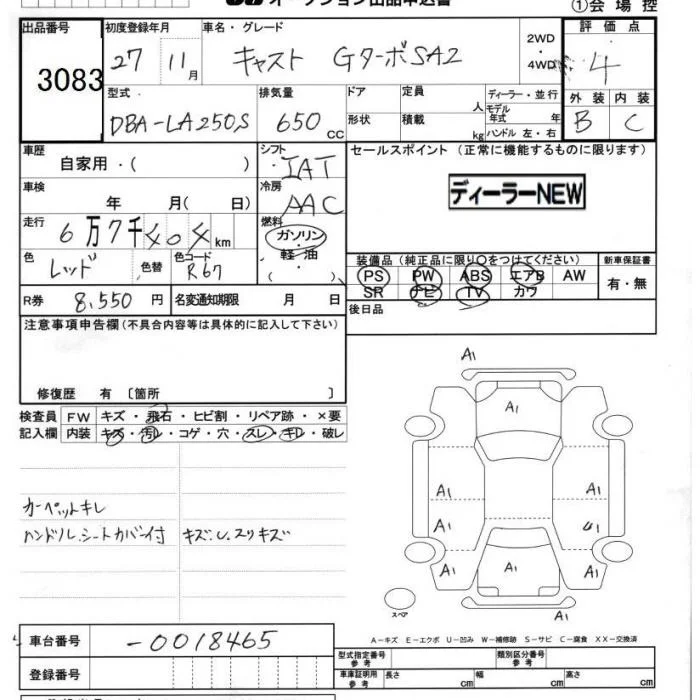 オークション出品申込書
①会場控
出品番号 初度登録年月 車名・グレード 2WD・4WD 評価点
3083 27年 11月 キャスト GターボSA2 4
型式 排気量 ドア 定員 人 ディーラー・並行 外装 内装
DBA-LA250S 650 CC 形状 積載 kg モデル年式 年 ハンドル 左・右 B C
車歴 シフト セールスポイント(正常に機能するものに限ります)
自家用・( ) IAT
車検 冷房 ディーラーNEW
年 月( 日) AAC
走行 燃料
6万7千 km ガソリン
色 色替 色コード 軽油 装備品(純正品に限り○をつけてください) 新車保証書
レッド R67 ( ) PS PW ABS エアB AW 有・無
R券 8,550円 名変通知期限 月 日 SR ナビ TV カワ
注意事項申告欄(不具合内容等は具体的に記入して下さい) 後日品
修復歴 有 〔箇所 〕
検査員 FW キズ・飛石・ヒビ割・リペア跡・×要
記入欄 内装 キズ・汚レ・コゲ・穴・スレ・キレ・破レ
カーペットキレ
ハンドル.シートカバー付 キズ.U.スリキズ
A1
A1
A1 A1
A1 U1
A1 A1 A1
スペア A1
A-キズ E-エクボ U-凹み W-補修跡 S-サビ C-腐食 XX-交換済
車台番号 -0018465
型式指定番号 参考 類別区分番号 参考
登録番号 車庫証明用 参考 長さ cm 幅 cm 高さ cm